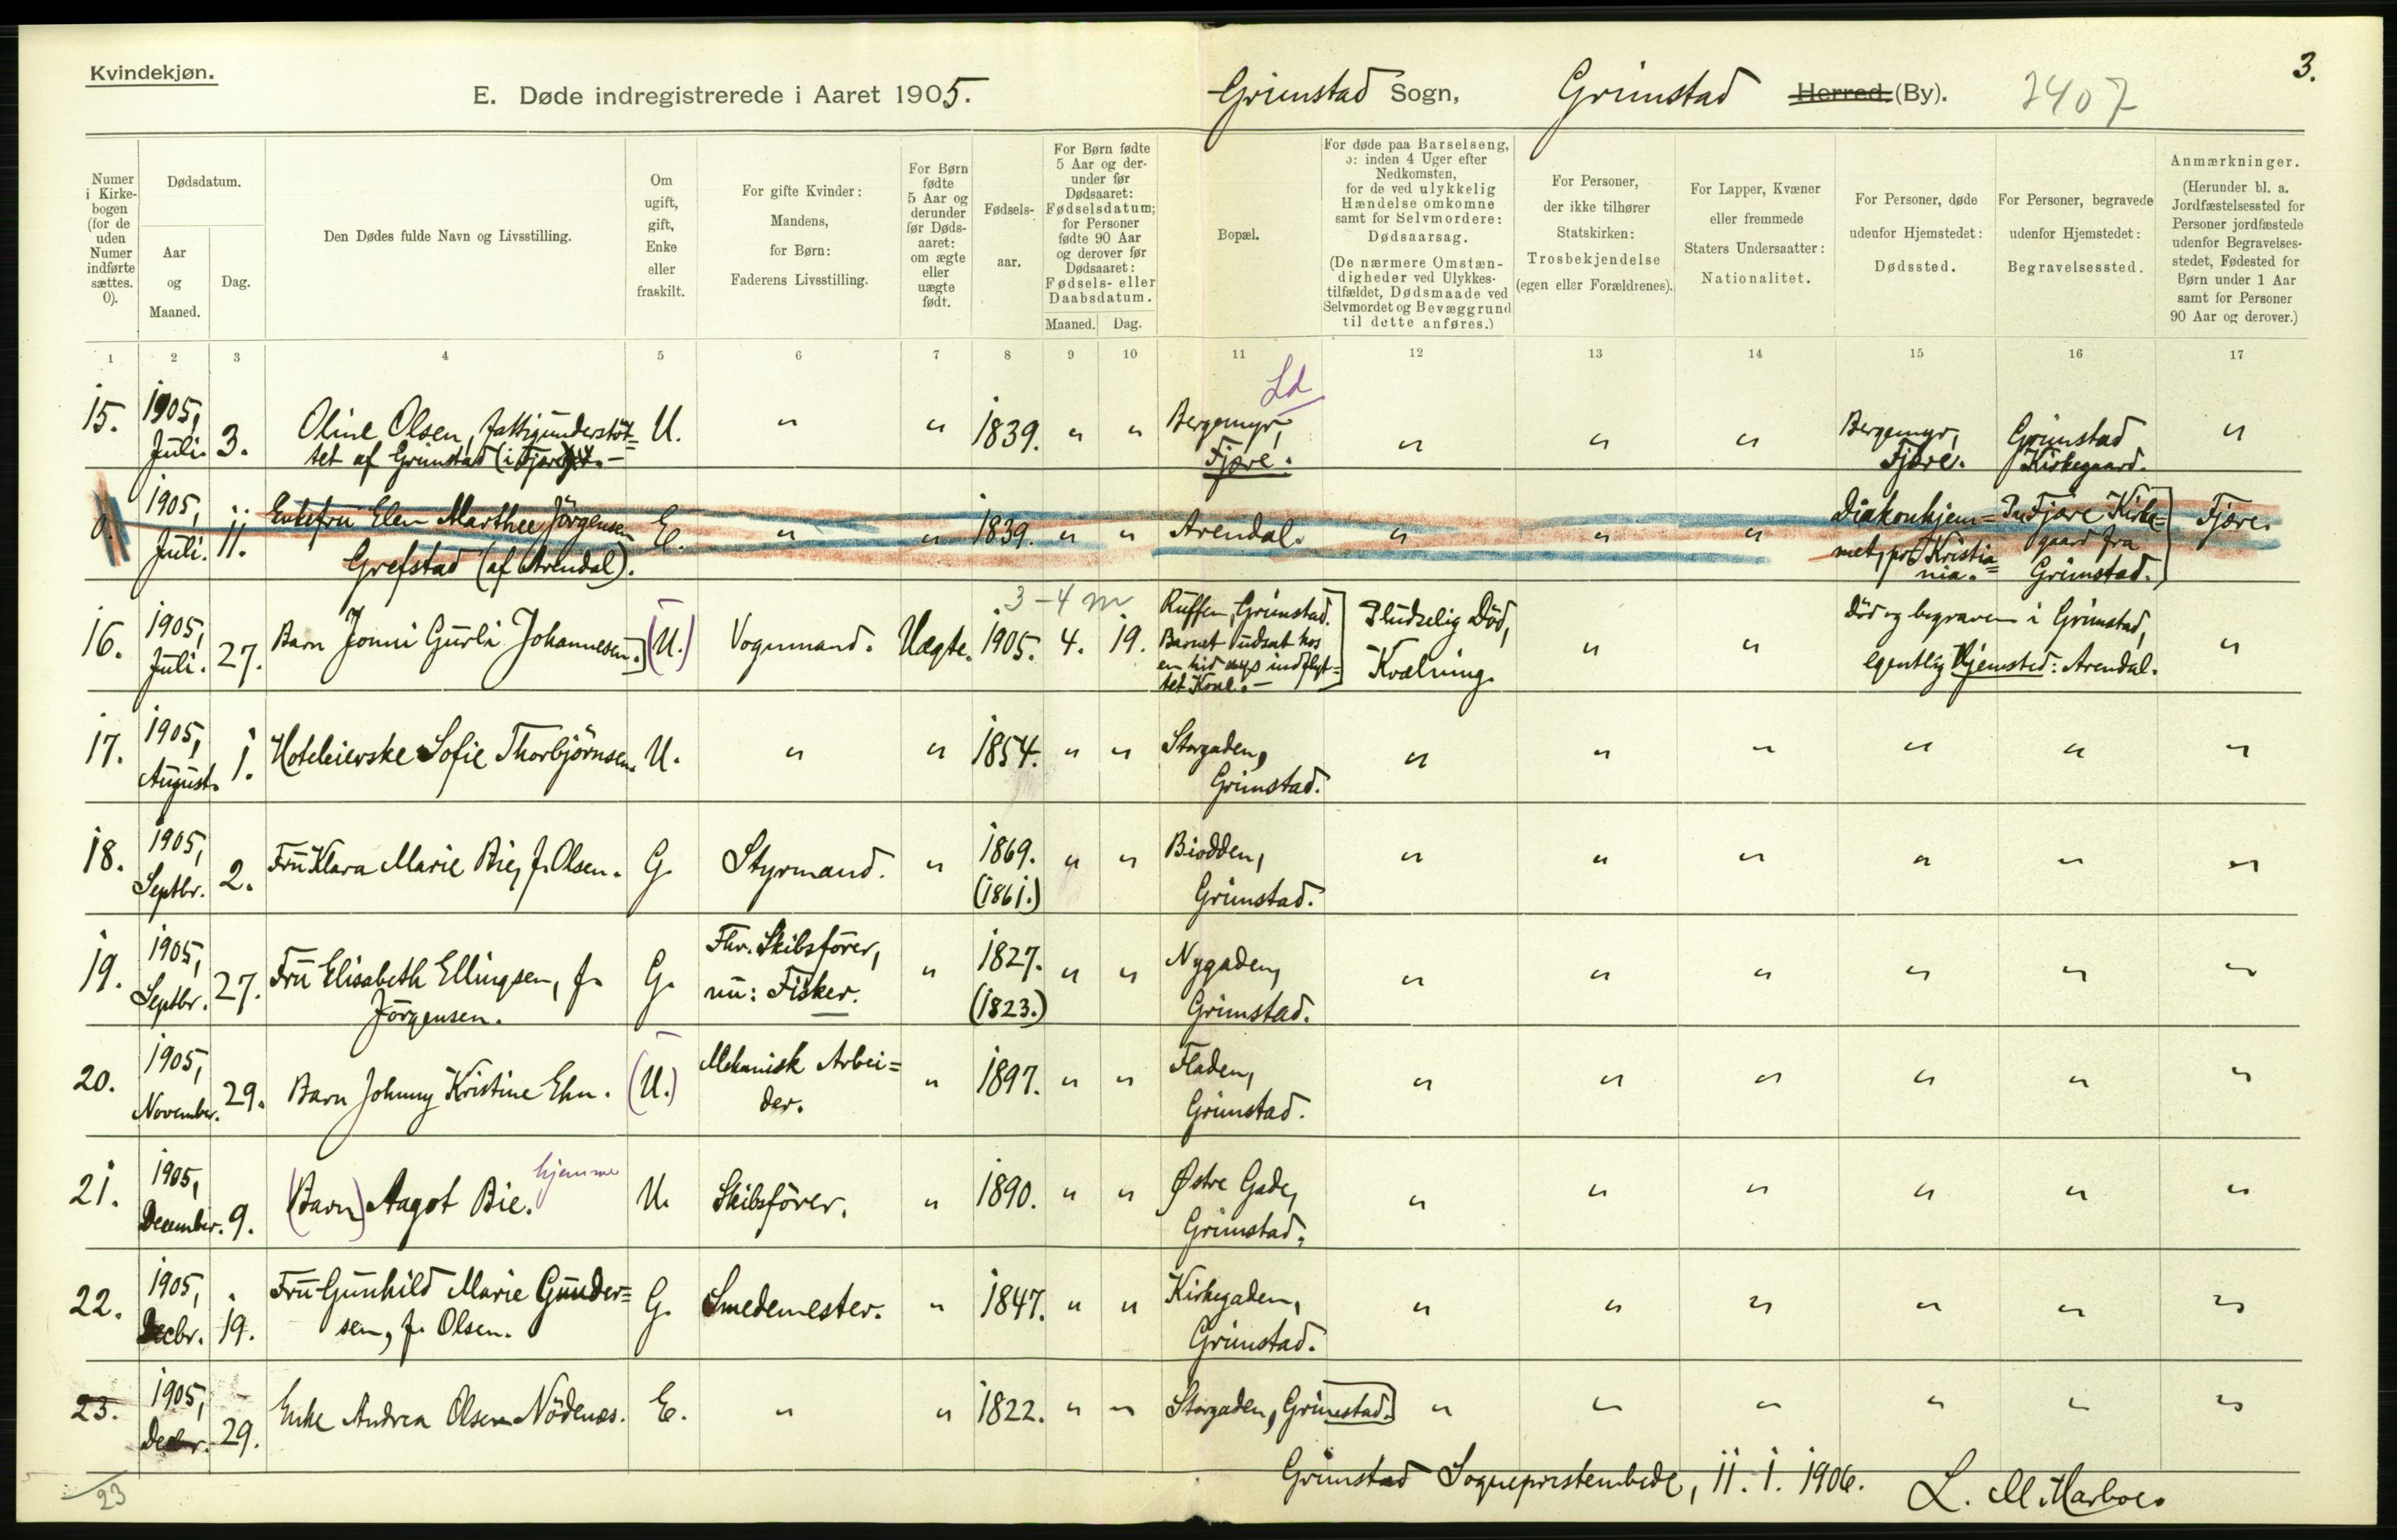 Kvindekjøn.
E. Døde indregistrerede i Aaret 1905.
Grimstad Sogn, Grimstad Herred. (By). 2407
3.
Numer
i Kirke-
bogen
(for de
uden
Numer
indførte
sættes.
0).
Dødsdatum.
Aar
og
Maaned.
Dag.
Den Dødes fulde Navn og Livsstilling.
Om
ugift,
gift,
Enke
eller
fraskilt.
For gifte Kvinder:
Mandens,
for Børn:
Faderens Livsstilling.
For Børn
fødte
5 Aar og
derunder
før Døds-
aaret:
om ægte
eller
uægte
født.
Fødsels-
aar.
For Børn fødte
5 Aar og der-
under før
Dødsaaret:
Fødselsdatum;
for Personer
fødte 90 Aar
og derover før
Dødsaaret:
Fødsels- eller
Daabsdatum.
Maaned. Dag.
Bopæl.
For døde paa Barselseng,
ɔ: inden 4 Uger efter
Nedkomsten,
for de ved ulykkelig
Hændelse omkomne
samt for Selvmordere:
Dødsaarsag.
(De nærmere Omstæn-
digheder ved Ulykkes-
tilfældet, Dødsmaade ved
Selvmordet og Bevæggrund
til dette anføres.)
For Personer,
der ikke tilhører
Statskirken:
Trosbekjendelse
(egen eller Forældrenes).
For Lapper, Kvæner
eller fremmede
Staters Undersaatter:
Nationalitet.
For Personer, døde
udenfor Hjemstedet:
Dødssted.
For Personer, begravede
udenfor Hjemstedet:
Begravelsessted.
Anmærkninger.
(Herunder bl. a.
Jordfæstelsessted for
Personer jordfæstede
udenfor Begravelses-
stedet, Fødested for
Børn under 1 Aar
samt for Personer
90 Aar og derover.)
1 2 3 4 5 6 7 8 9 10 11 12 13 14 15 16 17
Ld
15. 1905, Juli. 3. Oline Olsen, fattigunderstöt=
tet af Grimstad (i Fjære). – U. " " 1839. " " Bergemyr,
Fjære. " " " Bergemyr,
Fjære. Grimstad
Kirkegaard. "
0. 1905, Juli. 11. Enkefru Elen Marthee Jörgensen
Grefstad (af Arendal). E. " " 1839. " " Arendal. " " " Diakonhjem=
met, pr. Kristia=
nia. Fjære Kirke=
gaard fra
Grimstad. Fjære.
3–4 m
16. 1905, Juli. 27. Barn Jonni Gurli Johannesen. (U.) Vognmand. Uægte. 1905. 4. 19. Ruffen, Grimstad.
Barnet udsat hos
en hid indflyt=
tet Kone. – Pludselig Död,
Kvælning. " " Död og begraven i Grimstad,
egentlig Hjemsted: Arendal. "
17. 1905, August. 1. Hoteleierske Sofie Thorbjörnsen. U. " " 1854. " " Storgaden,
Grimstad. " " " " " "
18. 1905, Septbr. 2. Fru Klara Marie Bie, f. Olsen. G. Styrmand. " 1869.
(1861.) " " Biodden,
Grimstad. " " " " " "
19. 1905, Septbr. 27. Fru Elisabeth Ellingsen, f.
Jörgensen. G. Fhv. Skibsförer,
nu: Fisker. " 1827.
(1823.) " " Nygaden,
Grimstad. " " " " " "
20. 1905, November. 29. Barn Johnny Kristine Ehn. (U.) Mekanisk Arbei=
der. " 1897. " " Fladen,
Grimstad. " " " " " "
21. 1905, December. 9. (Barn) Aagot Bie. hjemme U. Skibsförer. " 1890. " " Østre Gade,
Grimstad. " " " " " "
22. 1905, Decbr. 19. Fru Gunhild Marie Gunder=
sen, f. Olsen. G. Smedemester. " 1847. " " Kirkegaden,
Grimstad. " " " " " "
23. 1905, Decbr. 29. Enke Andrea Olsen Nödenæs. E. " " 1822. " " Storgaden, Grimstad. " " " " " "
23
Grimstad Sogneprestembede, 11. 1. 1906. L. M.